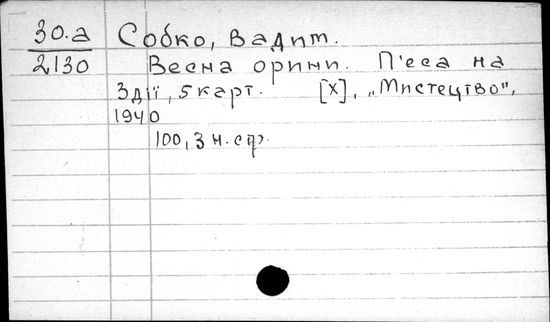 30.а Собко, Вадим.
2130 Весна орини. П'еса на
3 дії, 5 карт. [Х], „Мистецтво",
1940
100, 3 н. стр.